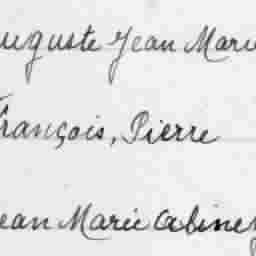 uguste Jean Marie
François, Pierre
ean Marie Cabiney